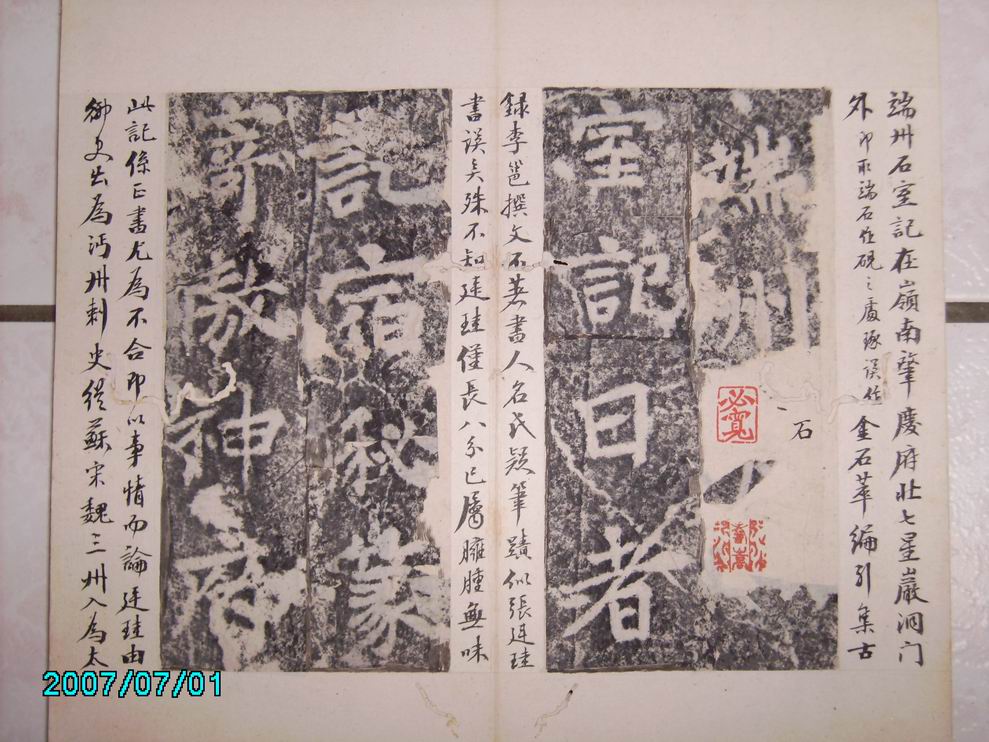 端州石室記在嶺南肇慶府北七星巖洞门
外即取端石作硯之處琢誤作金石萃編引集古
端州石
室記曰者
録李邕撰文不著書人名氏疑筆蹟似張廷珪
書誤矣殊不知廷珪僅長八分已屬臃腫無味
記宿秘篆
神府
此記係正書尤為不合即以事情而論廷珪由
御史出為沔州刺史從蘇宋魏三州入為太
2007/07/01